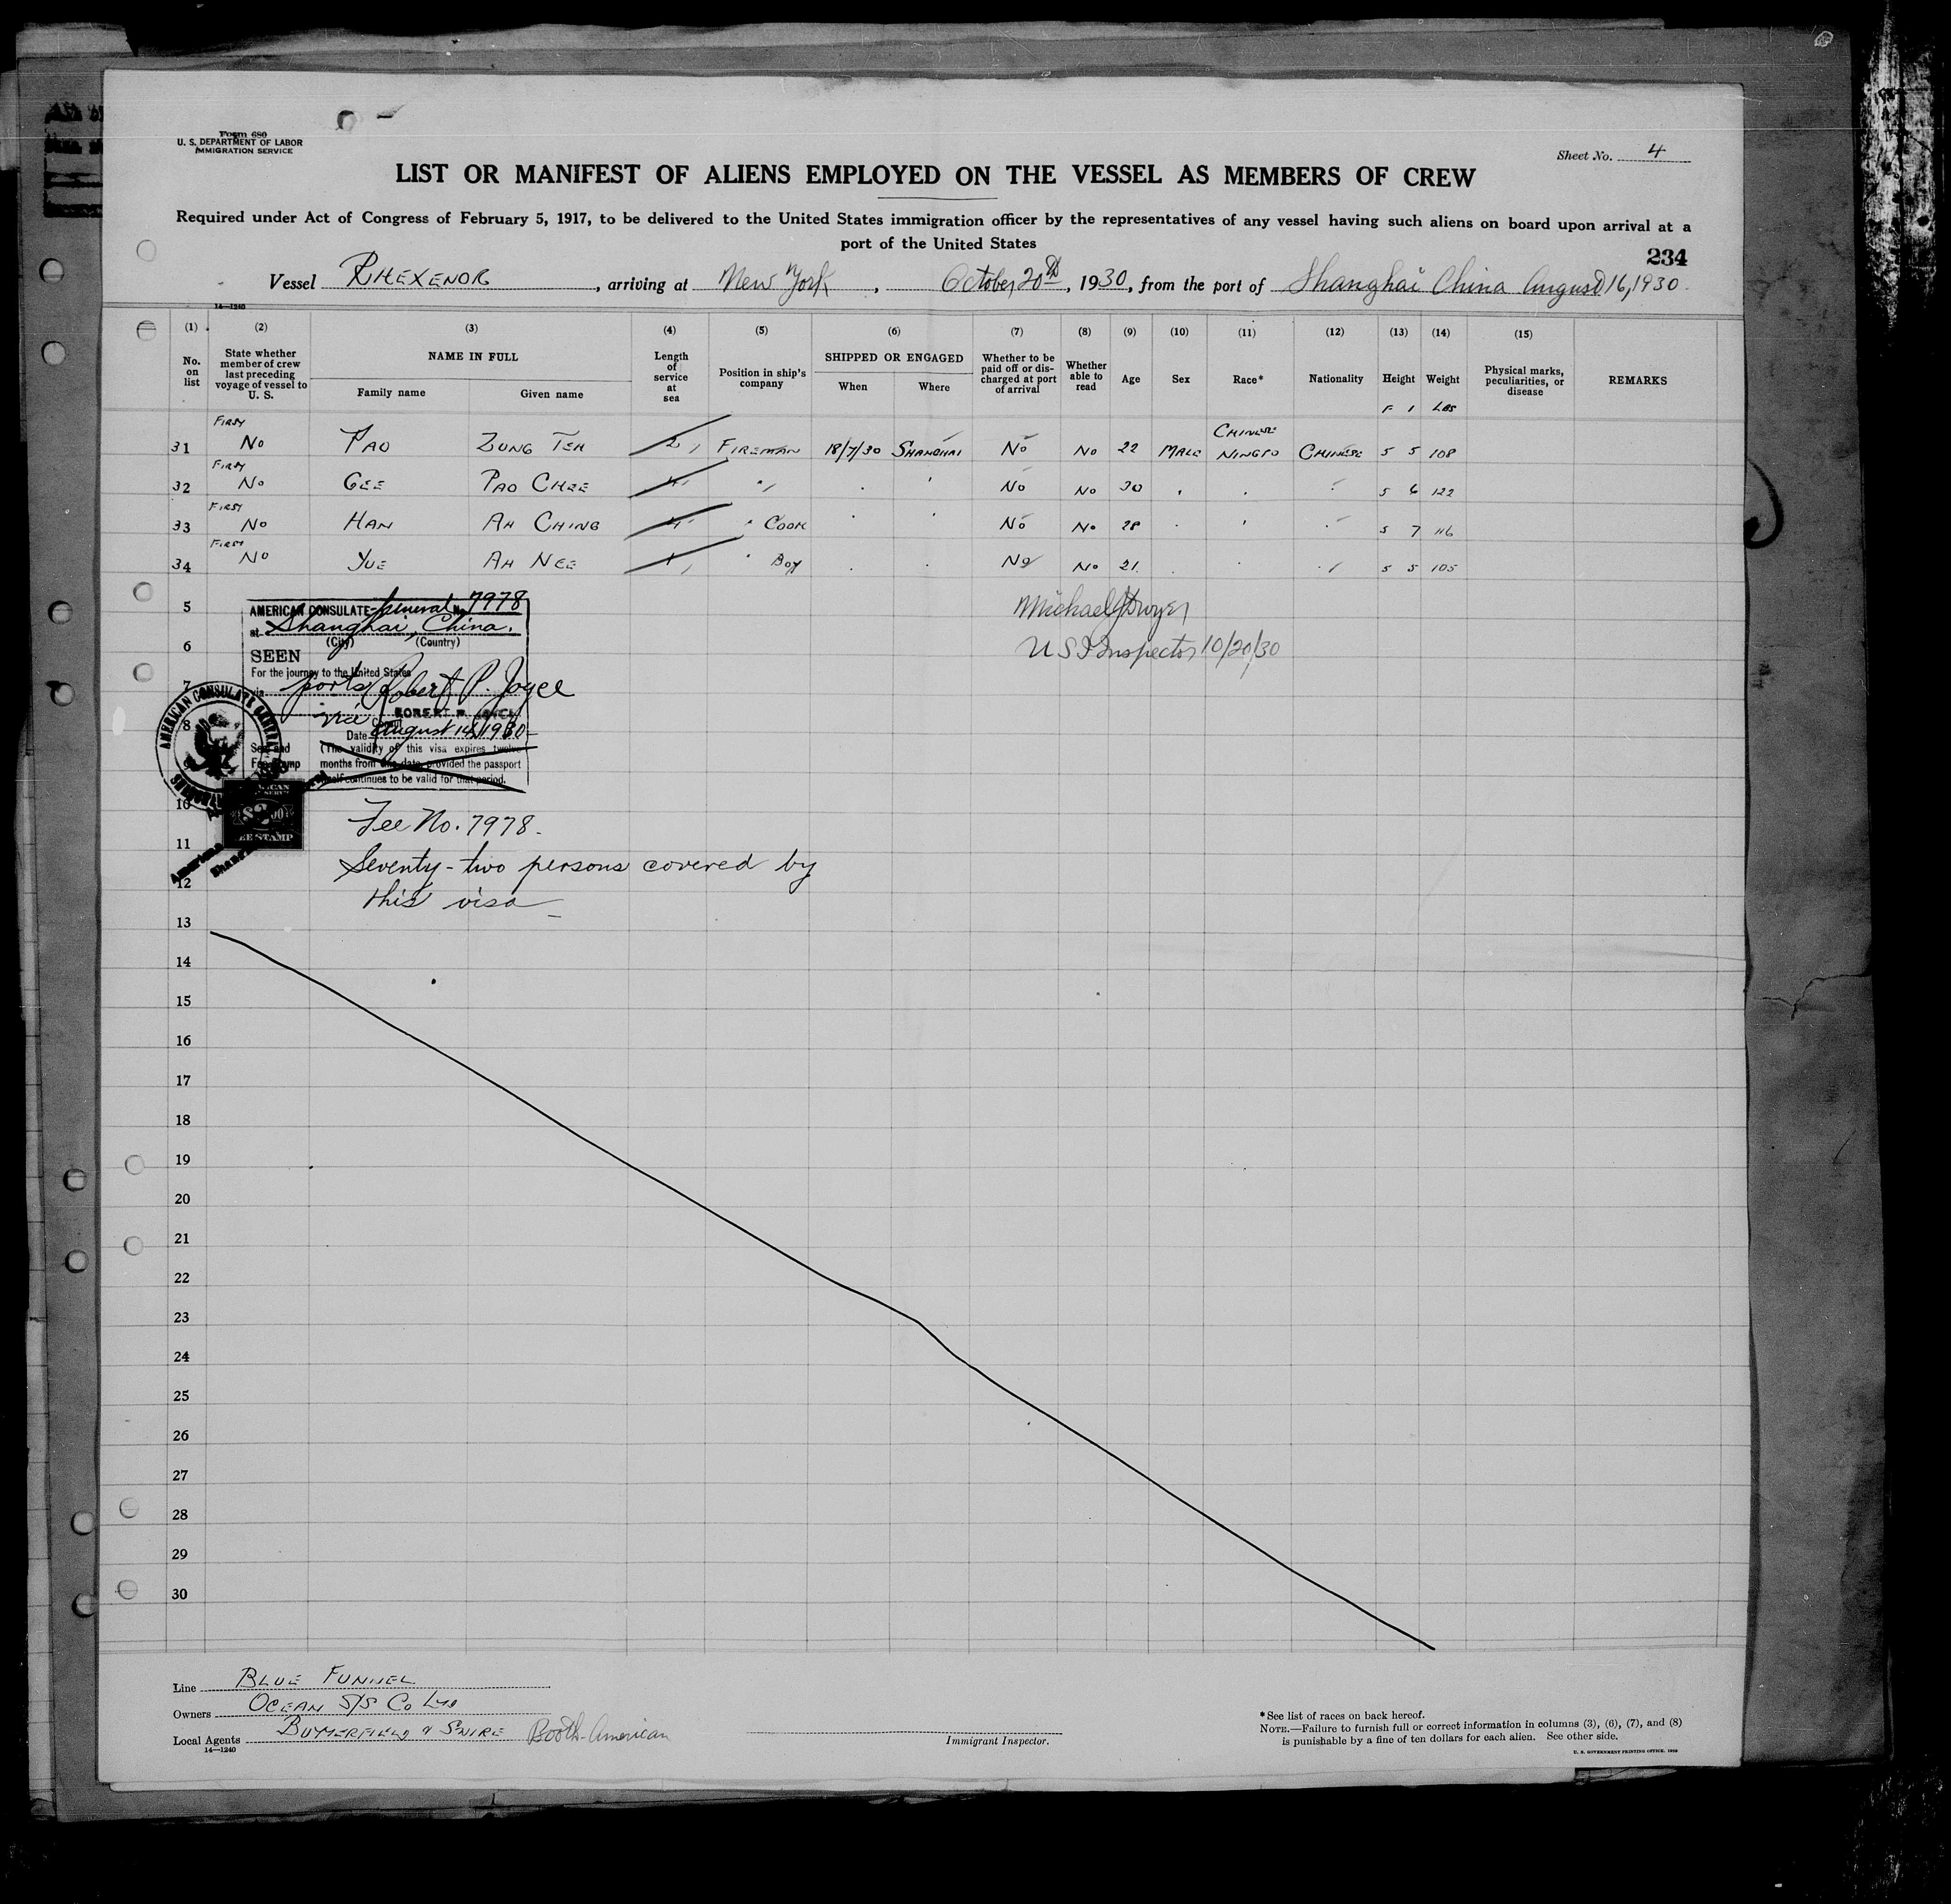 Form 680
U. S. DEPARTMENT OF LABOR
IMMIGRATION SERVICE
Sheet No. 4
LIST OR MANIFEST OF ALIENS EMPLOYED ON THE VESSEL AS MEMBERS OF CREW
Required under Act of Congress of February 5, 1917, to be delivered to the United States immigration officer by the representatives of any vessel having such aliens on board upon arrival at a
port of the United States
234
Vessel RHEXENOR, arriving at New York, October 20th, 1930, from the port of Shanghai China August 16, 1930.
14—1240
(1) (2) (3) (4) (5) (6) (7) (8) (9) (10) (11) (12) (13) (14) (15)
No. on list
State whether member of crew last preceding voyage of vessel to U. S.
NAME IN FULL
Family name Given name
Length of service at sea
Position in ship's company
SHIPPED OR ENGAGED
When Where
Whether to be paid off or discharged at port of arrival
Whether able to read
Age Sex Race* Nationality Height Weight
Physical marks, peculiarities, or disease
REMARKS
F I LBS
31 First No PAO ZUNG TEH 2 " FIREMAN 18/7/30 SHANGHAI No No 22 MALE CHINESE NINGPO CHINESE 5 5 108
32 First No GEE PAO CHEE 4 " " " " No No 30 " " " 5 6 122
33 First No HAN AH CHING 4 " " COOK " " No No 28 " " " 5 7 116
34 First No YUE AH NEE 1 " " BOY " " No No 21 " " " 5 5 105
5
6
7
8
9
10
11
12
13
14
15
16
17
18
19
20
21
22
23
24
25
26
27
28
29
30
Michael J Dwyer
U S I Inspector 10/20/30
AMERICAN CONSULATE-General No. 7978
at Shanghai, China.
(City) (Country)
SEEN
For the journey to the United States
via ports Robert P. Joyce
via
ROBERT P. JOYCE
Consul
Date August 14, 1930
Seal and
Fee Stamp
(The validity of this visa expires twelve
months from this date, provided the passport
itself continues to be valid for that period.
AMERICAN CONSULATE GENERAL
FEE STAMP
Fee No. 7978.
Seventy-two persons covered by
this visa
Line BLUE FUNNEL
Owners OCEAN S/S Co Ltd
Local Agents BUTTERFIELD & SWIRE Booth-American
14—1240
Immigrant Inspector.
*See list of races on back hereof.
NOTE.—Failure to furnish full or correct information in columns (3), (6), (7), and (8)
is punishable by a fine of ten dollars for each alien. See other side.
U. S. GOVERNMENT PRINTING OFFICE: 1929